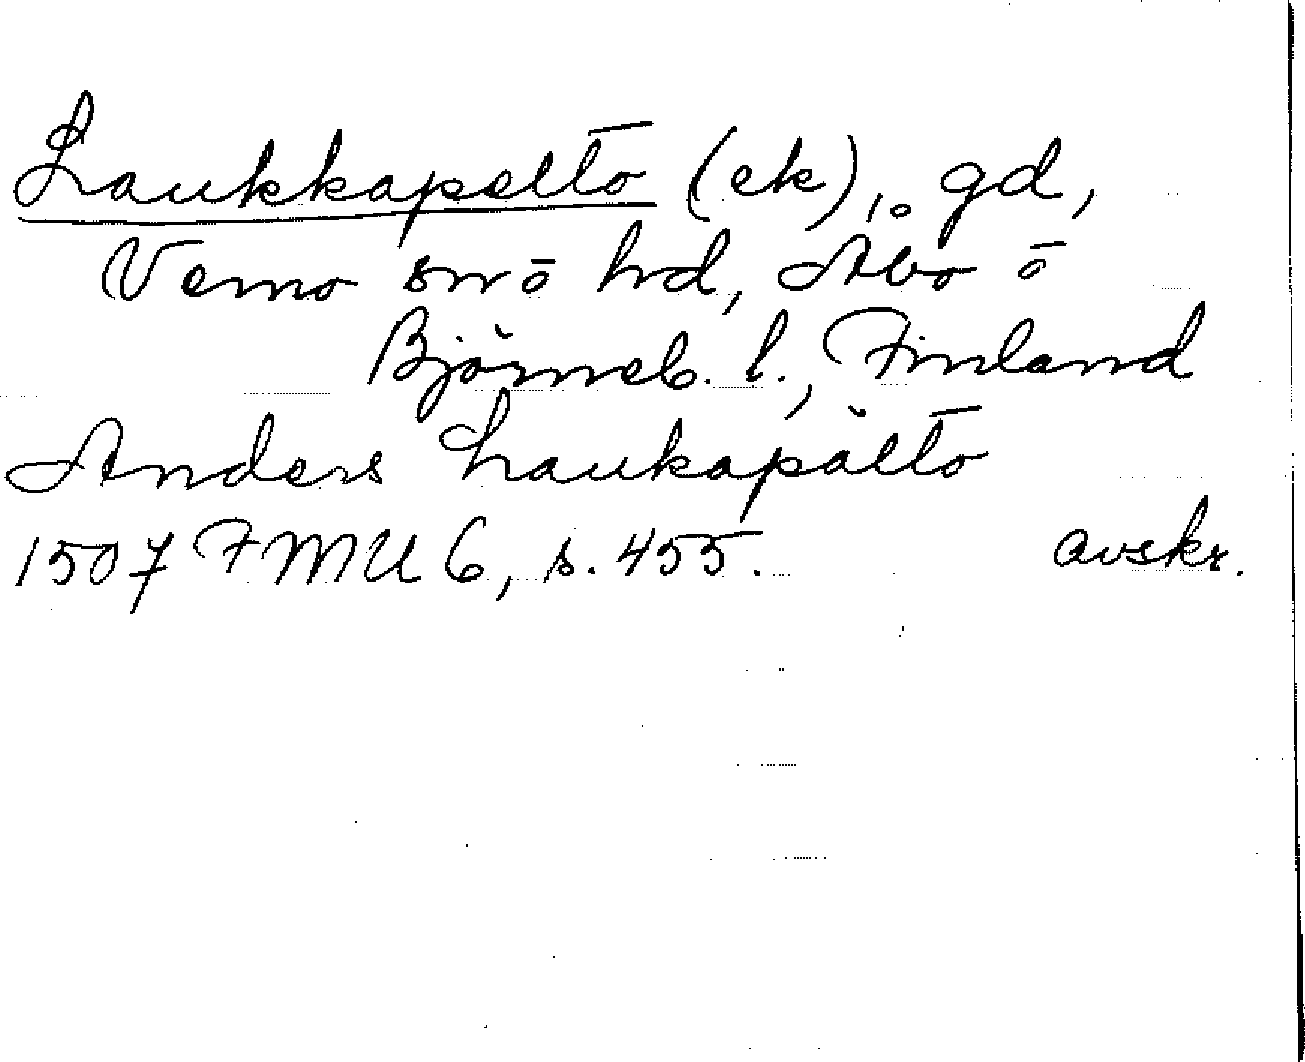 Laukkapelto (ek), gd,
Vemo sn o hd, Åbo o
Björneb. l., Finland
Anders Laukapälto
1507 FMU 6, s. 455. avskr.